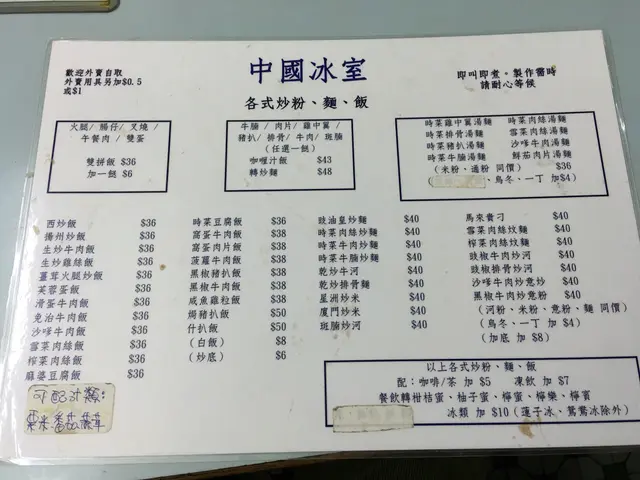 歡迎外賣自取
外賣用具另加$0.5
或$1
中國冰室
各式炒粉、麵、飯
即叫即煮。製作需時
請耐心等候
火腿/腸仔/叉燒/
午餐肉/雙蛋
雙拼飯 $36
加一餸 $6
牛腩/肉片/雞中翼/
豬扒/排骨/牛肉/斑腩
(任選一餸)
咖喱汁飯 $43
轉炒麵 $48
時菜雞中翼湯麵 時菜肉絲湯麵
時菜排骨湯麵 雪菜肉絲湯麵
時菜豬扒湯麵 沙嗲牛肉湯麵
時菜牛腩湯麵 鮮茄肉片湯麵
(米粉、通粉 同價) $36
、烏冬、一丁 加$4)
西炒飯 $36
揚州炒飯 $36
生炒牛肉飯 $36
生炒雞絲飯 $36
薑茸火腿炒飯 $36
芙蓉蛋飯 $36
滑蛋牛肉飯 $36
免治牛肉飯 $36
沙嗲牛肉飯 $36
雪菜肉絲飯 $36
榨菜肉絲飯 $36
麻婆豆腐飯 $36
時菜豆腐飯 $36
窩蛋牛肉飯 $38
窩蛋肉片飯 $38
菠蘿牛肉飯 $38
黑椒豬扒飯 $38
黑椒牛肉飯 $38
咸魚雞粒飯 $38
焗豬扒飯 $50
什扒飯 $50
(白飯) $8
(炒底) $6
豉油皇炒麵 $40
時菜肉絲炒麵 $40
時菜牛肉炒麵 $40
時菜牛腩炒麵 $40
乾炒牛河 $40
乾炒排骨麵 $40
星洲炒米 $40
廈門炒米 $40
斑腩炒河 $40
馬來貴刁 $40
雪菜肉絲炆麵 $40
榨菜肉絲炆麵 $40
豉椒牛肉炒河 $40
豉椒排骨炒河 $40
沙嗲牛肉炒意粉 $40
黑椒牛肉炒意粉 $40
(河粉、米粉、意粉、麵 同價)
(烏冬、一丁 加 $4)
(加底 加 $8)
可配汁類:
粟米 番茄
以上各式炒粉、麵、飯
配:咖啡/茶 加 $5 凍飲 加 $7
餐飲轉柑桔蜜、柚子蜜、檸蜜、檸樂、檸賓
冰類 加 $10 (蓮子冰、鴛鴦冰除外)